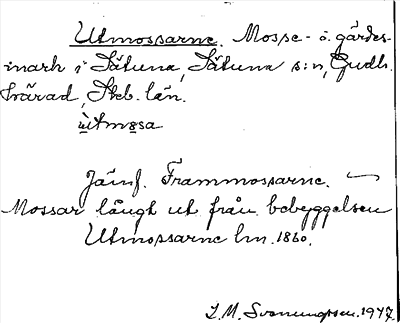 Utmossarne. Mosse- o. gärdes-
mark i Sätuna, Sätuna s:n, Gudh.
härad, Skb. län.
ùtmøsa
Jämf. Frammossarne.
Mossar långt ut från bebyggelsen
Utmossarne lm. 1860.
I. M. Svenungsson. 1947